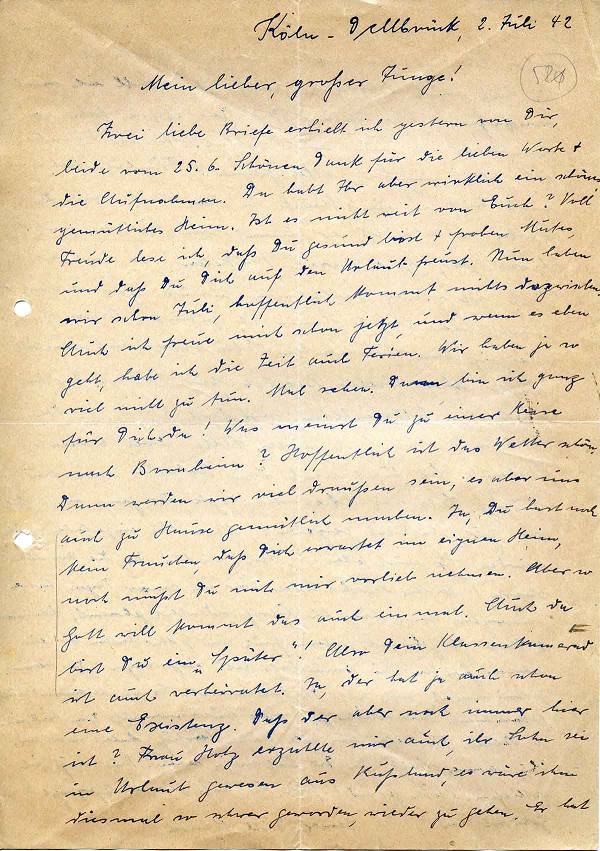 Köln-Dellbrück, 2. Juli 42
Mein lieber, großer Junge!
Zwei liebe Briefe erhielt ich gestern von Dir,
beide vom 25.6. Schönen Dank für die lieben Worte +
die Aufnahmen. Da habt Ihr aber wirklich ein schönes,
gemütliches Heim. Ist es nicht weit von Euch? Voll
Freude lese ich, daß Du gesund bist + frohen Mutes
und daß Du Dich auf den Urlaub freust. Nun haben
wir schon Juli, hoffentlich kommt nichts dazwischen.
Auch ich freue mich schon jetzt, und wenn es eben
geht, habe ich die Zeit auch Ferien. Wir haben ja so
viel nicht zu tun. Mal sehen. Dann bin ich ganz
für Dich da! Was meinst Du zu einer Reise
nach Bornheim? Hoffentlich ist das Wetter schön.
Dann werden wir viel draußen sein, es aber uns
auch zu Hause gemütlich machen. Ja, Du hast noch
kein Frauchen, daß Dich erwartet im eignen Heim,
noch mußt Du mit mir vorlieb nehmen. Aber so
Gott will kommt das auch einmal. Auch da
bist Du ein „Später"! Also Dein Klassenkamerad
ist auch verheiratet. Ja, der hat ja auch schon
eine Existenz. Daß der aber noch immer hier
ist? Frau Hotz erzählte mir auch, ihr Sohn sei
in Urlaub gewesen aus Rußland, es wäre ihm
diesmal so schwer geworden, wieder zu gehen. Er hat